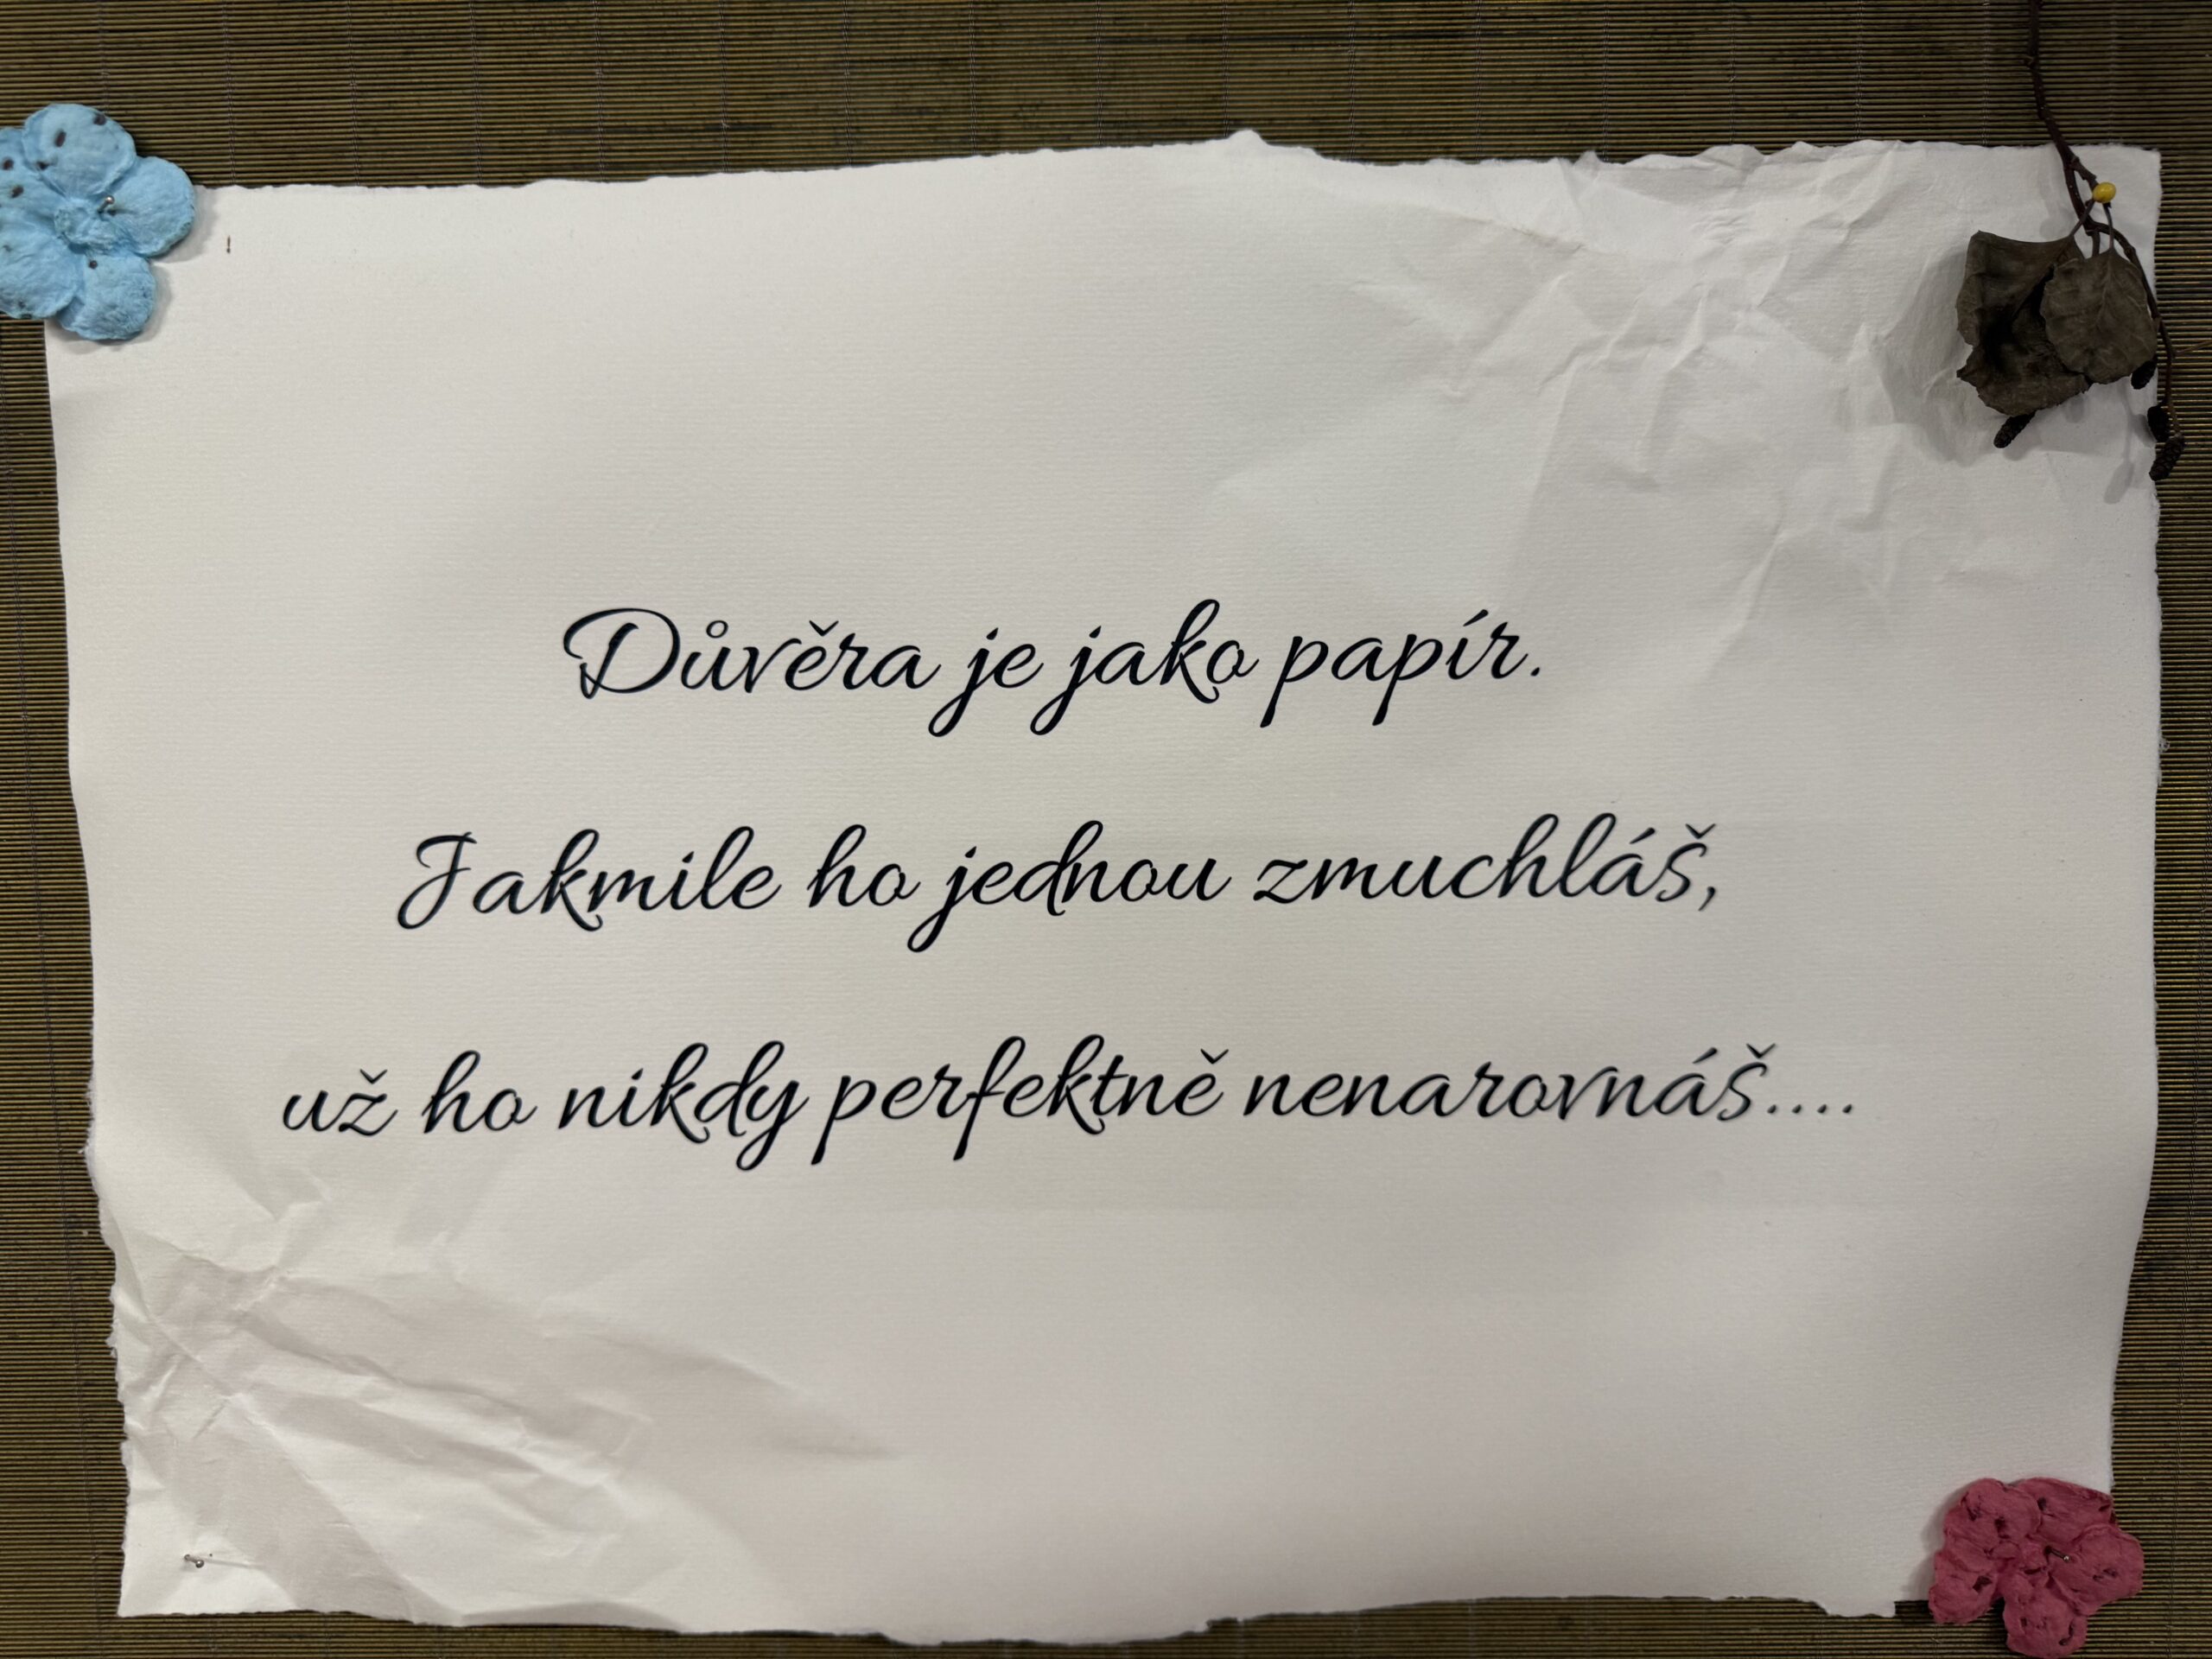 Důvěra je jako papír.
Jakmile ho jednou zmuchláš,
už ho nikdy perfektně nenarovnáš....